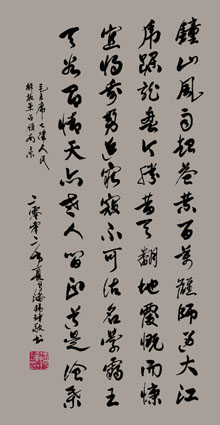 鐘山風雨起蒼黃百萬雄師過大江
虎踞龍盤今勝昔天翻地覆慨而慷
宜將剩勇追窮寇不可沽名學霸王
天若有情天亦老人間正道是滄桑
毛主席七律人民
解放軍占領南京
二零零二年夏月